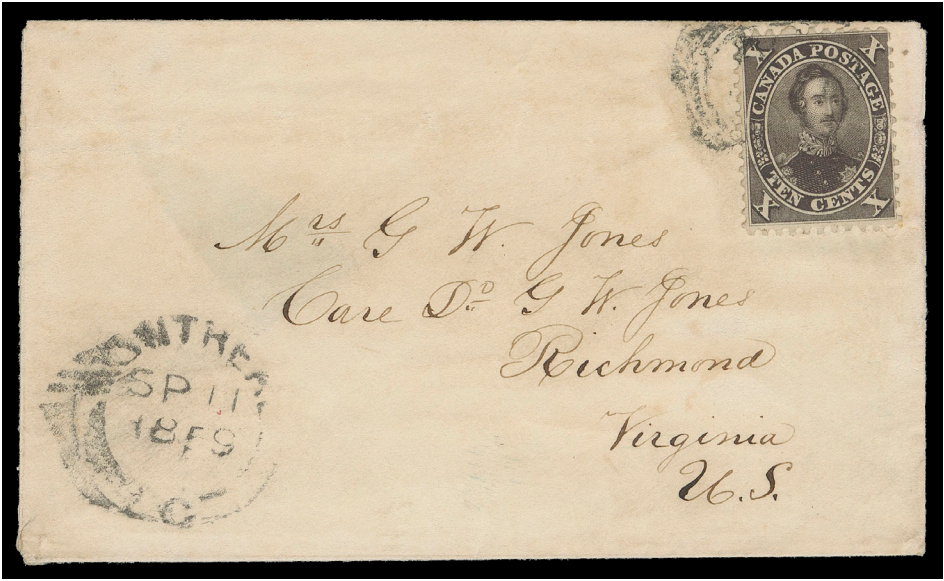 X X
CANADA POSTAGE
TEN CENTS
X X
Mrs G W. Jones
Care Dr G W. Jones
Richmond
Virginia
U.S.
SP 11
1859